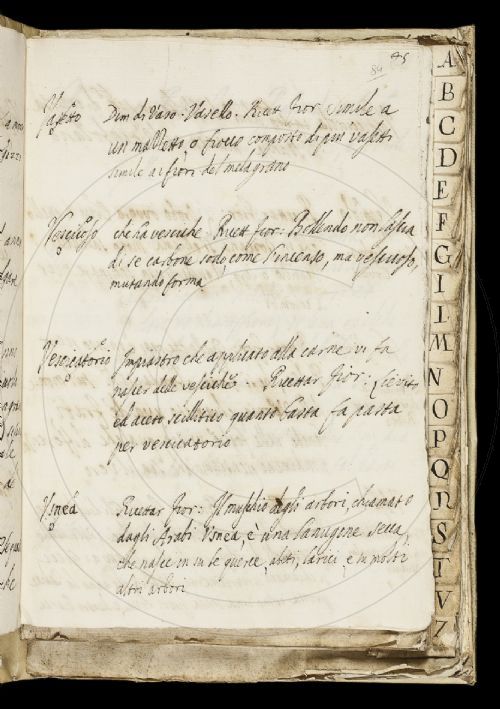 84
Vasetto Dim di Vaso. Vasello. Ricett Fior Simile a
un mazzetto, o fiocco composto di piu vasetti
simile ai fiori del melagrano
Vesicoso che ha vesciche. Ricett Fior: Bollendo non lascia
di se carbone sodo, come l'incenso, ma vescicoso,
mutando forma
Vesicatorio Impiastro che applicato alla carne vi fa
nascer delle vesciche. Ricettar Fior:
ed aceto scillitico quanto basta fa pasta
per vesicatorio
Usnea Ricettar Fior: Il muschio degli arbori, chiamato
dagli Arabi Usnea, è una lanugine secca,
che nasce in su le querce, abeti, larici, e in molti
altri arbori
A
B
C
D
E
F
G
I
L
M
N
O
P
Q
R
S
T
V
Z